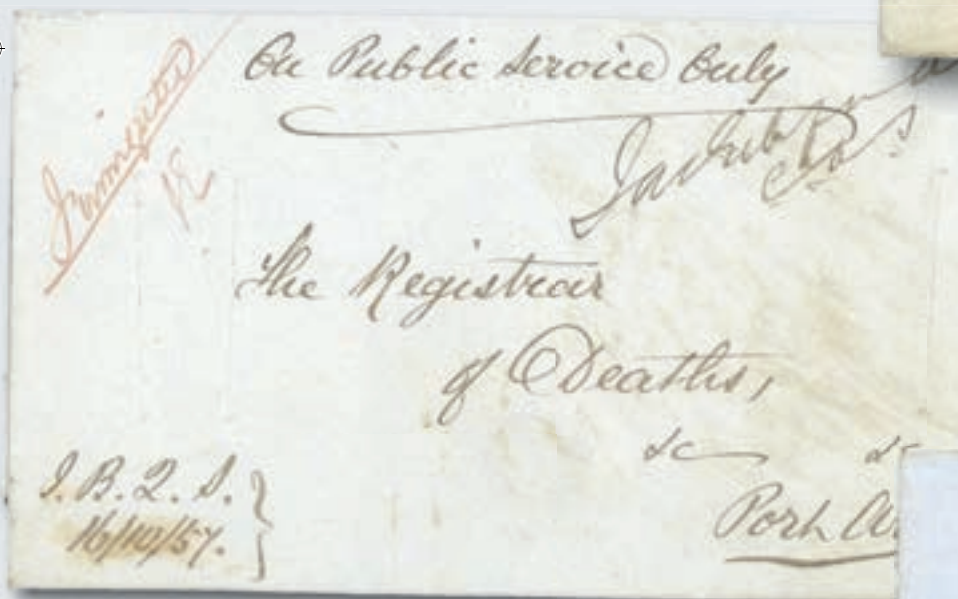 On Public Service Only
The Registrar
of Deaths,
&c &c
Port A
J. B. Q. S.
16/10/57.